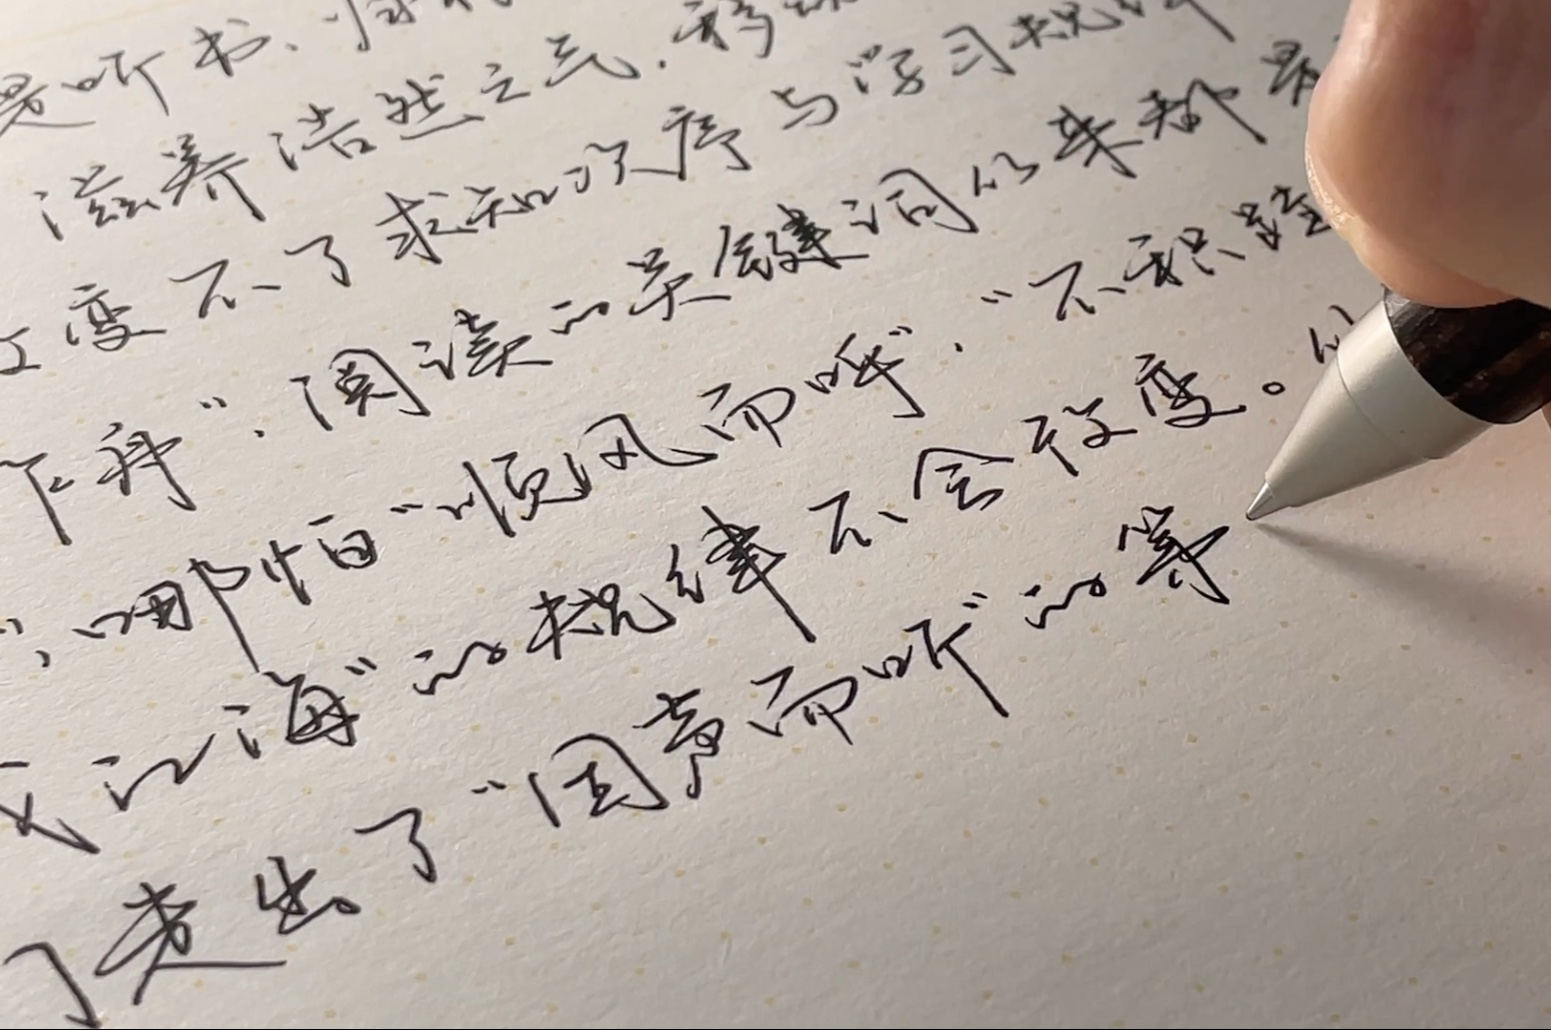 是听书、
滋养浩然之气，
改变不了求知次序与学习规律
下拜”，阅读的关键词从来都是
”，哪怕“顺风而呼”，“不积跬
成江海”的规律不会改变。
们走出了“因声而听”的等